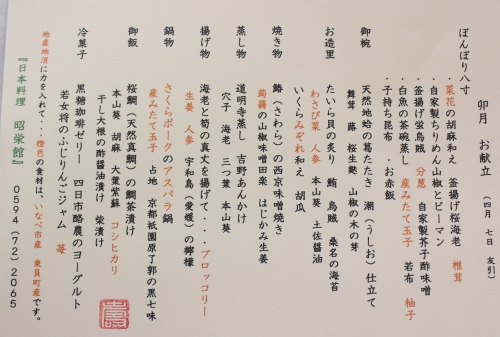 卯月　お献立　（四月　七日　友引）
ぼんぼり八寸
・菜花の胡麻和え　釜揚げ桜海老　椎茸
・自家製ちりめん山椒とピーマン
・釜揚げ蛍烏賊　分葱　自家製芥子酢味噌
・白魚の茶碗蒸し　産みたて玉子　若布　柚子
・子持ち昆布　・お赤飯
御椀
天然地蛤の葛たたき　潮（うしお）仕立て
舞茸　蕗　桜生麩　山椒の木の芽
お造里
たいら貝の炙り　鮪　烏賊　桑名の海苔
わさび菜　人参　本山葵　土佐醤油
いくらみぞれ和え　胡瓜
焼き物
鰆（さわら）の西京味噌焼き
蒟蒻の山椒味噌田楽　はじかみ生姜
蒸し物
道明寺蒸し　吉野あんかけ
穴子　海老　三つ葉　本山葵
揚げ物
海老と筍の真丈を揚げて・・・ブロッコリー
生姜　人参　宇和島（愛媛）の檸檬
鍋物
さくらポークのアスパラ鍋
産みたて玉子　占地　京都祇園原了郭の黒七味
御飯
桜鯛（天然真鯛）の鯛茶漬け
本山葵　胡麻　大葉紫蘇　コシヒカリ
干し大根の酢醤油漬け　柴漬け
冷菓子
黒糖珈琲ゼリー　四日市酪農のヨーグルト
若女将のふじりんごジャム　苺
地産地消に力を入れて・・・橙色の食材は、いなべ市産　東員町産です。
『日本料理　昭栄館』　0594（72）2065